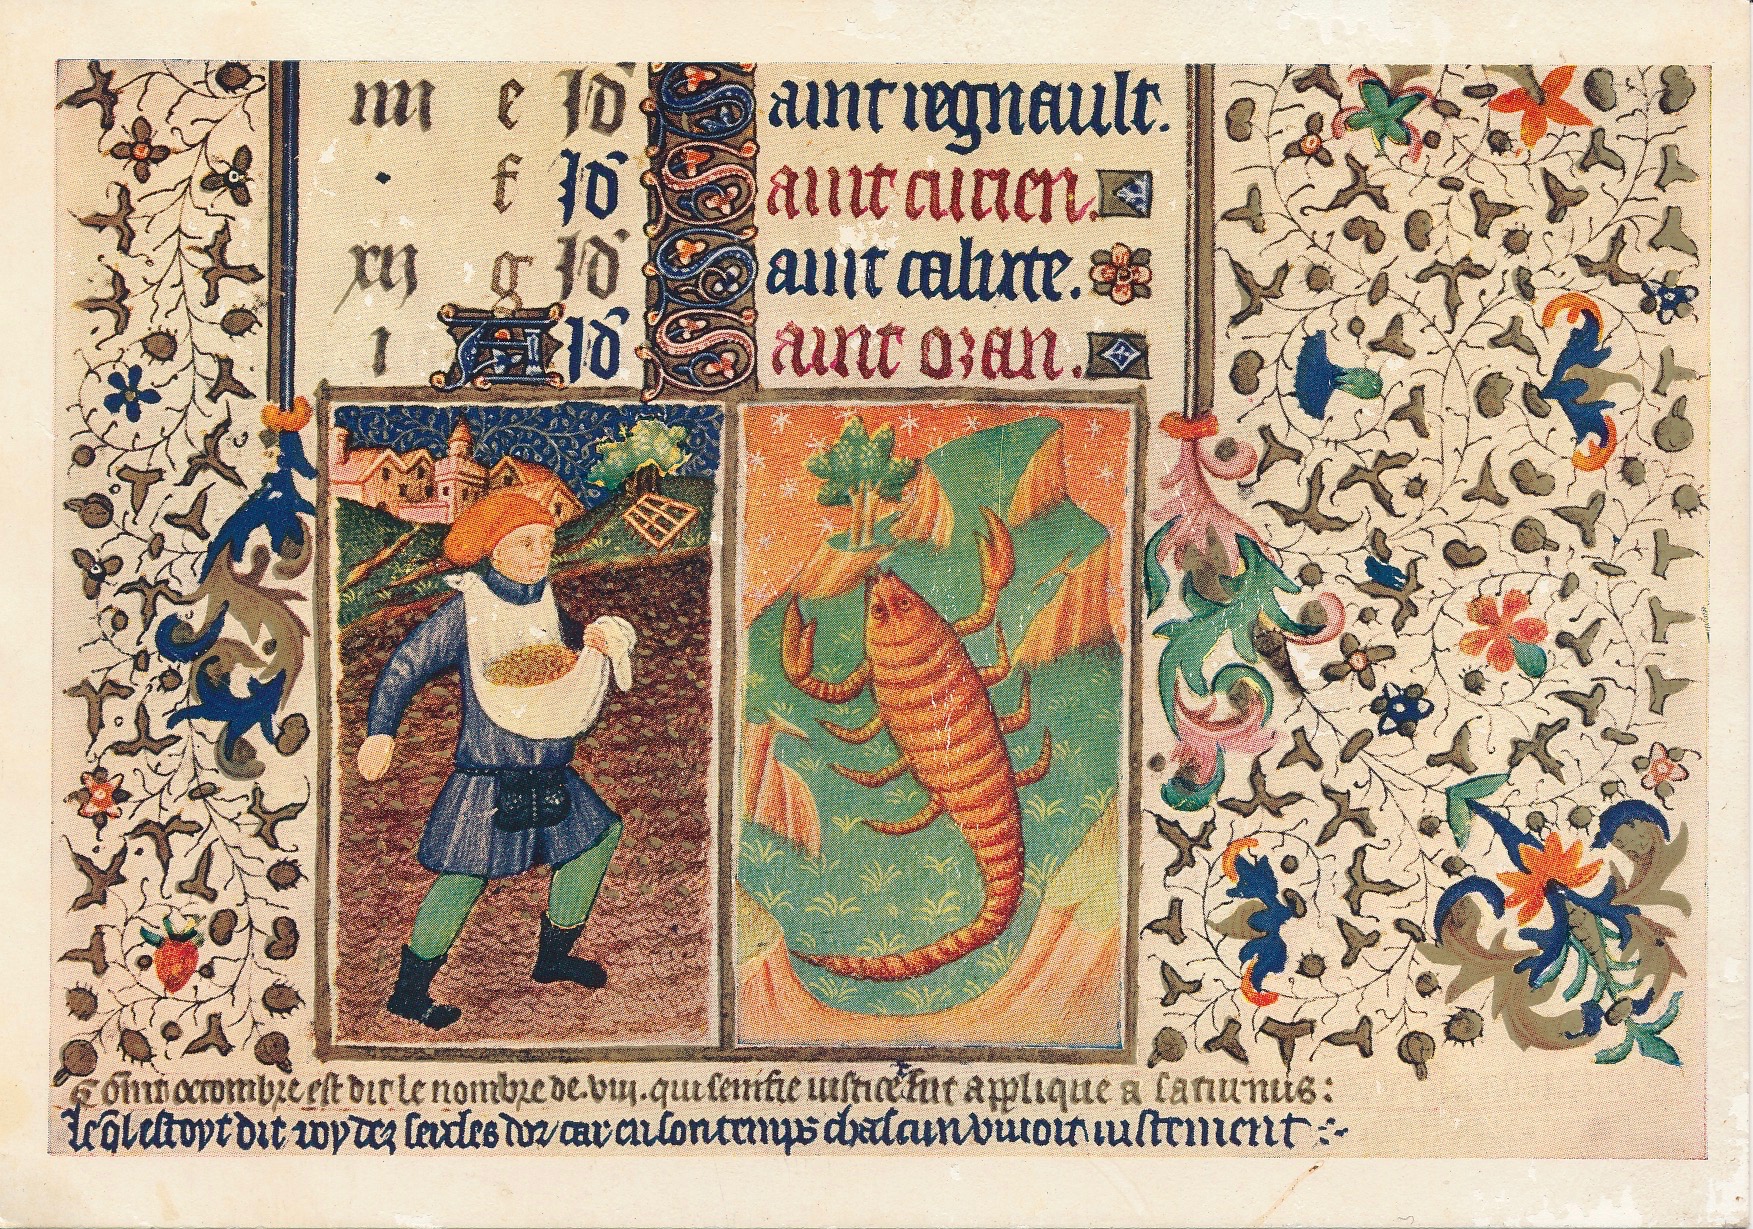 iiii e Id Saint regnault.
f Id Saint cucien.
xii g Id Saint calixte.
i A Id Saint oran.
Comment octombre est dit le nombre de .viii. qui senifie iustice & fut applique a saturnus:
le ql estoyt dit roy dez seicles dor car en son temps chascun viuoit iustement